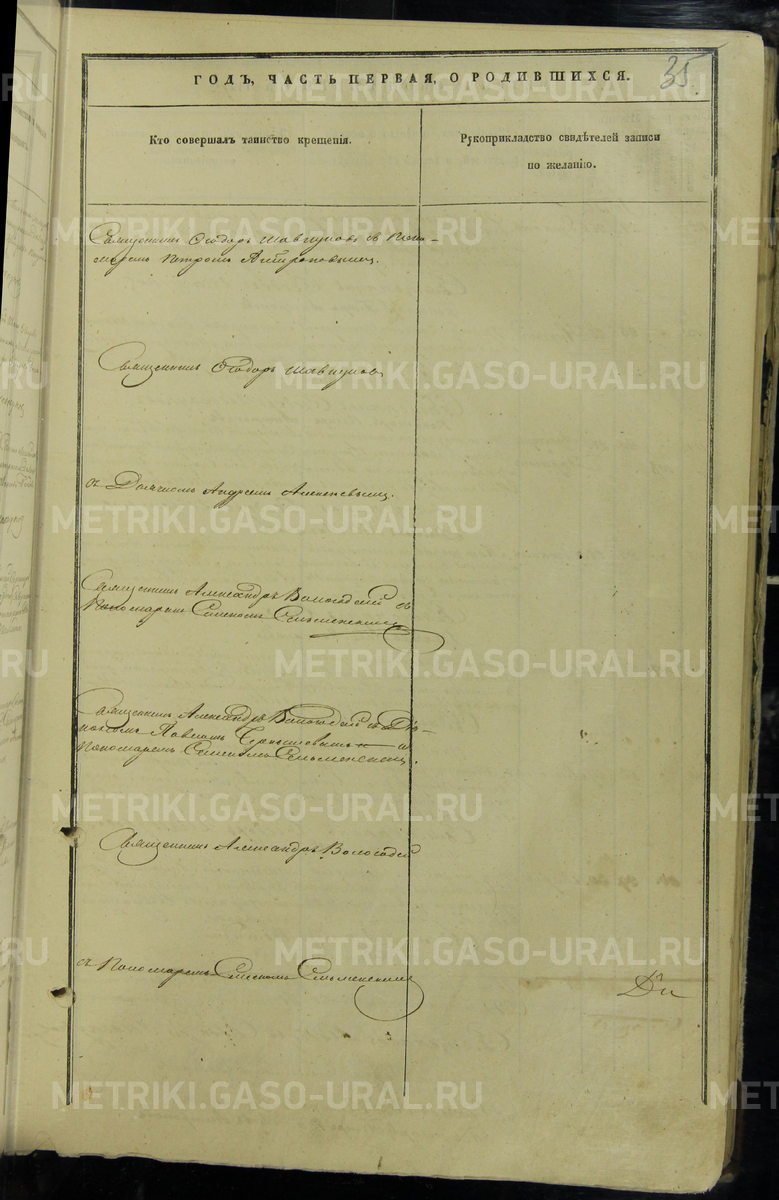 35
ГОДЪ, ЧАСТЬ ПЕРВАЯ, О РОДИВШИХСЯ.
Кто совершалъ таинство крещенія.
Рукоприкладство свидѣтелей записи
по желанію.
Священникъ Ѳеодоръ съ Поно-
маремъ Петромъ
Священникъ Ѳеодоръ
съ Дьячкомъ Андреемъ
Священникъ Александръ Вологодскій съ
Пономаремъ Семеномъ
Священникъ Александръ Вологодскій съ Діа-
кономъ Павломъ и
Пономаремъ Семеномъ
Священникъ Александръ Вологодскій
съ Пономаремъ Семеномъ
METRIKI.GASO-URAL.RU